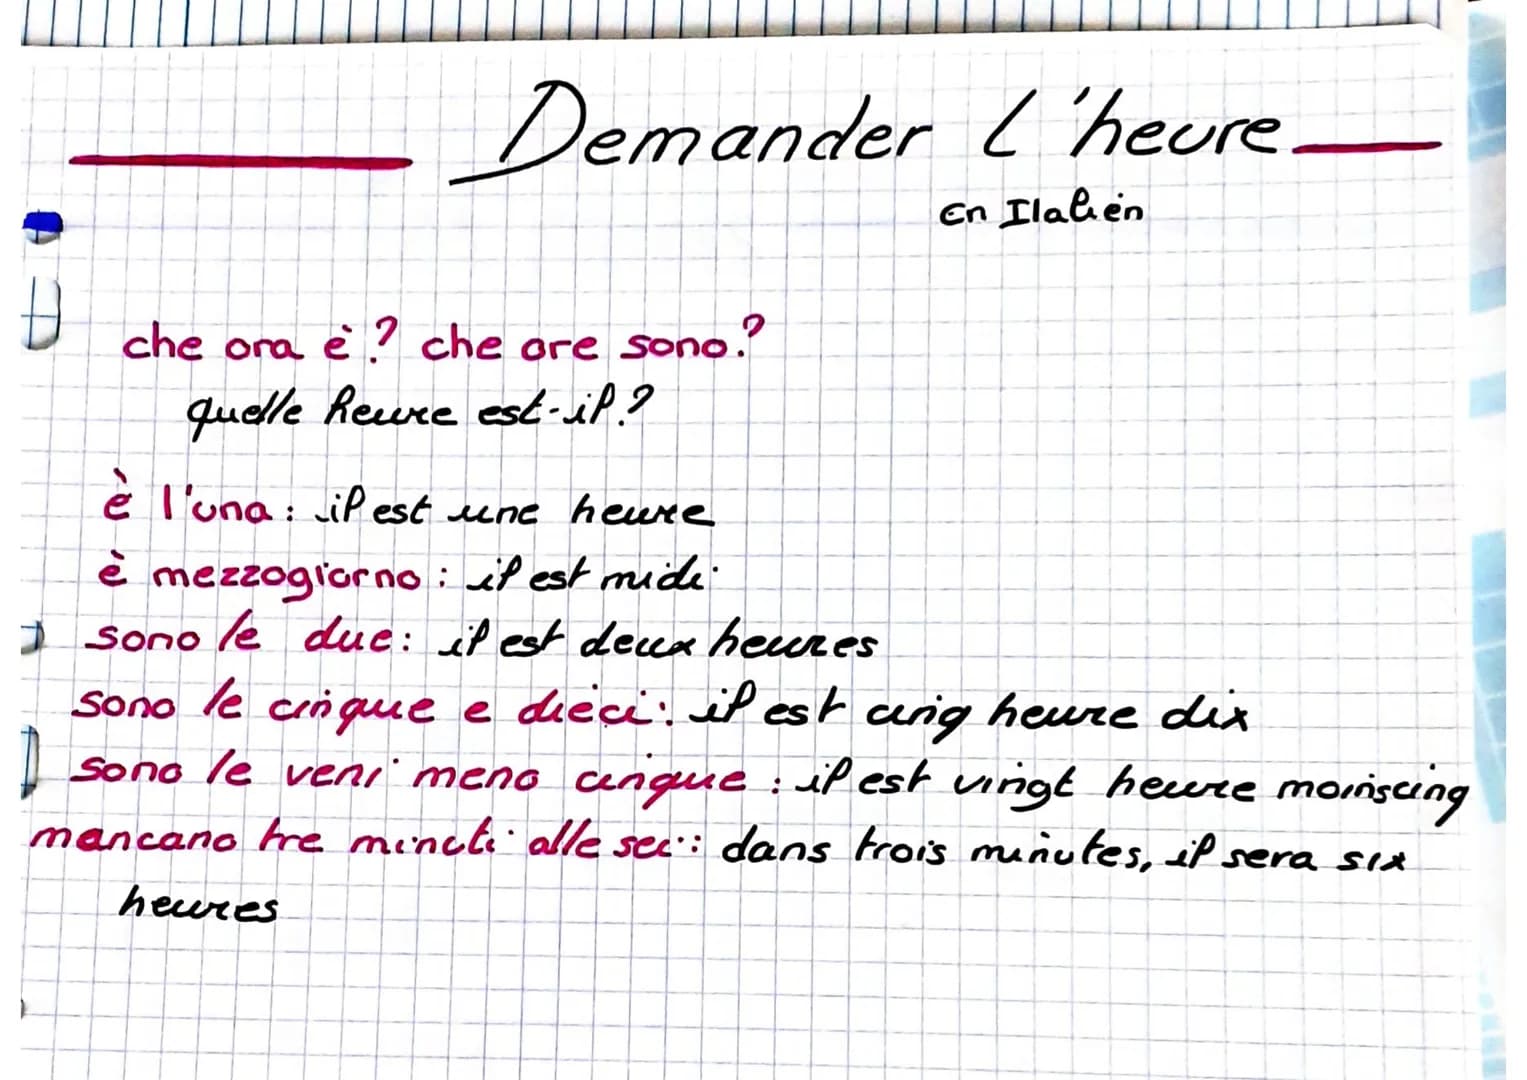 Demander l'heure
en Italien
che ora è ? che ore sono ?
quelle heure est-il ?
è l'una : il est une heure
è mezzogiorno : il est midi
sono le due : il est deux heures
sono le cinque e dieci : il est cinq heure dix
sono le venti meno cinque : il est vingt heure moins cinq
mancano tre minuti alle sei : dans trois minutes, il sera six
heures